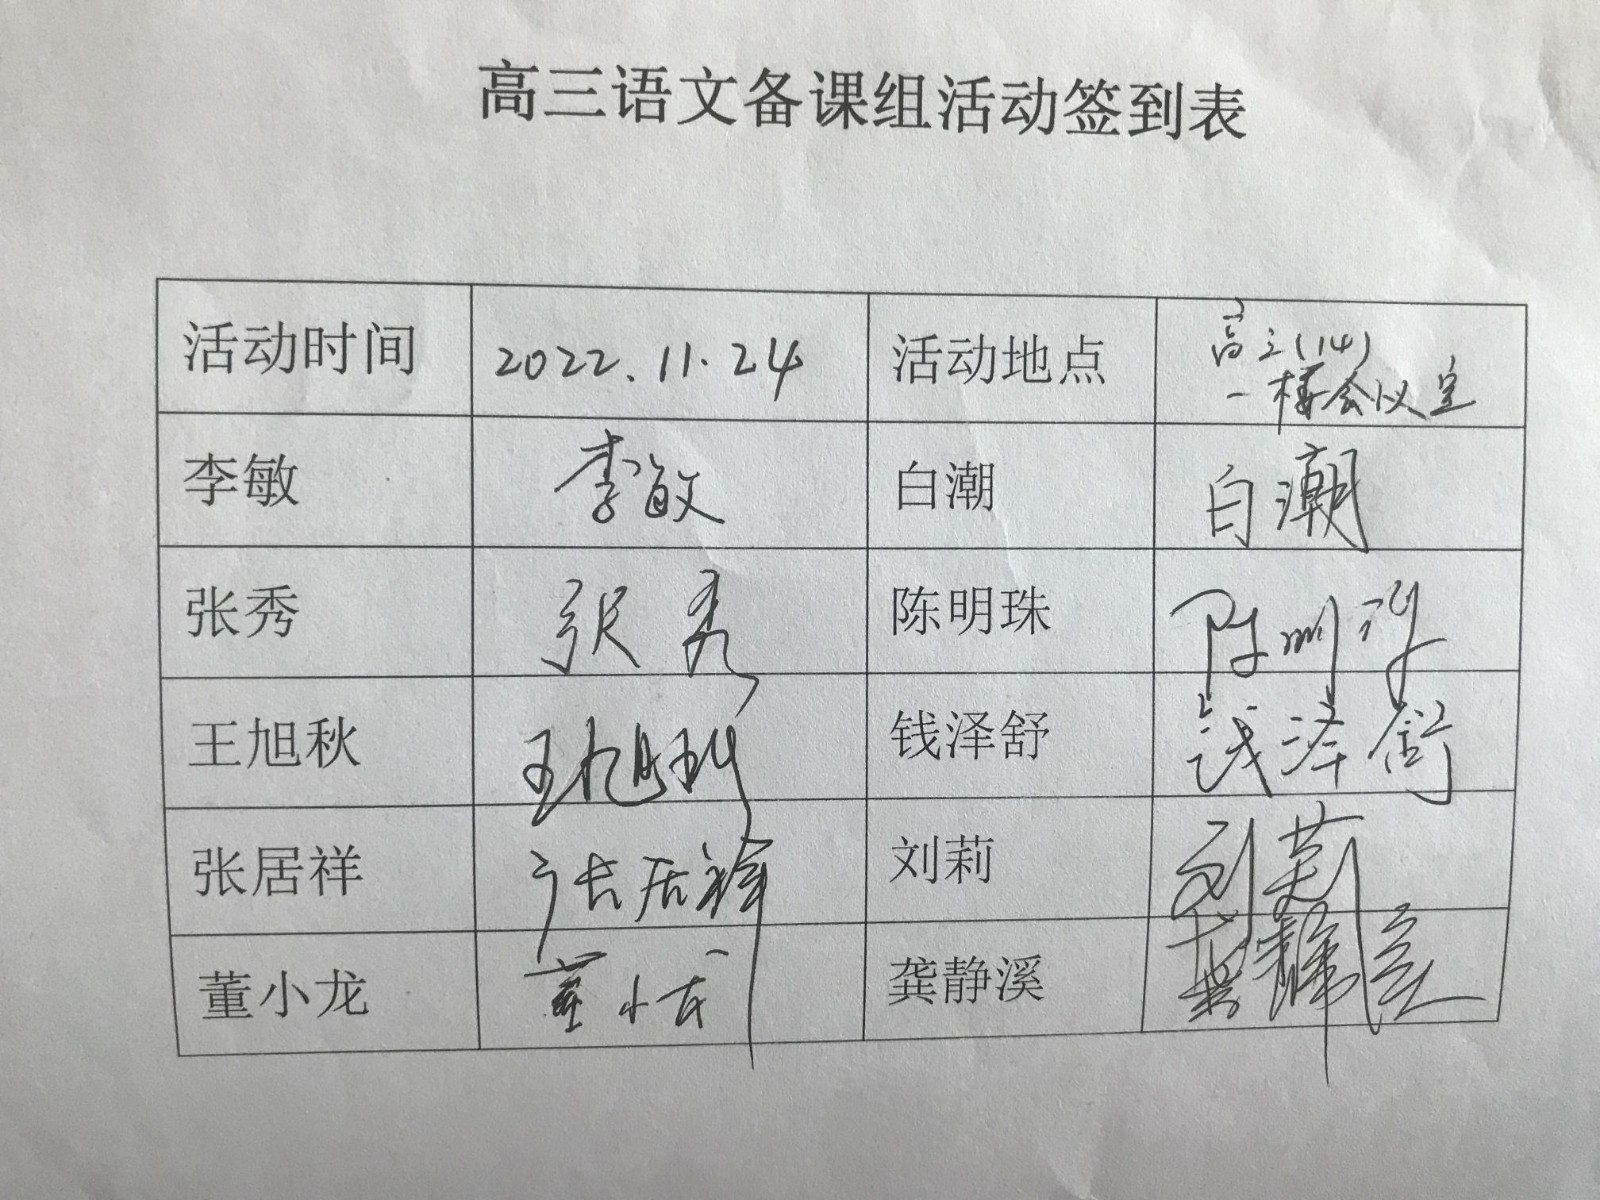 高三语文备课组活动签到表
活动时间 2022.11.24 活动地点 高三(14)
一楼会议室
李敏 李敏 白潮 白潮
张秀 张秀 陈明珠 陈明珠
王旭秋 王旭秋 钱泽舒 钱泽舒
张居祥 张居祥 刘莉 刘莉
董小龙 董小龙 龚静溪 龚静溪